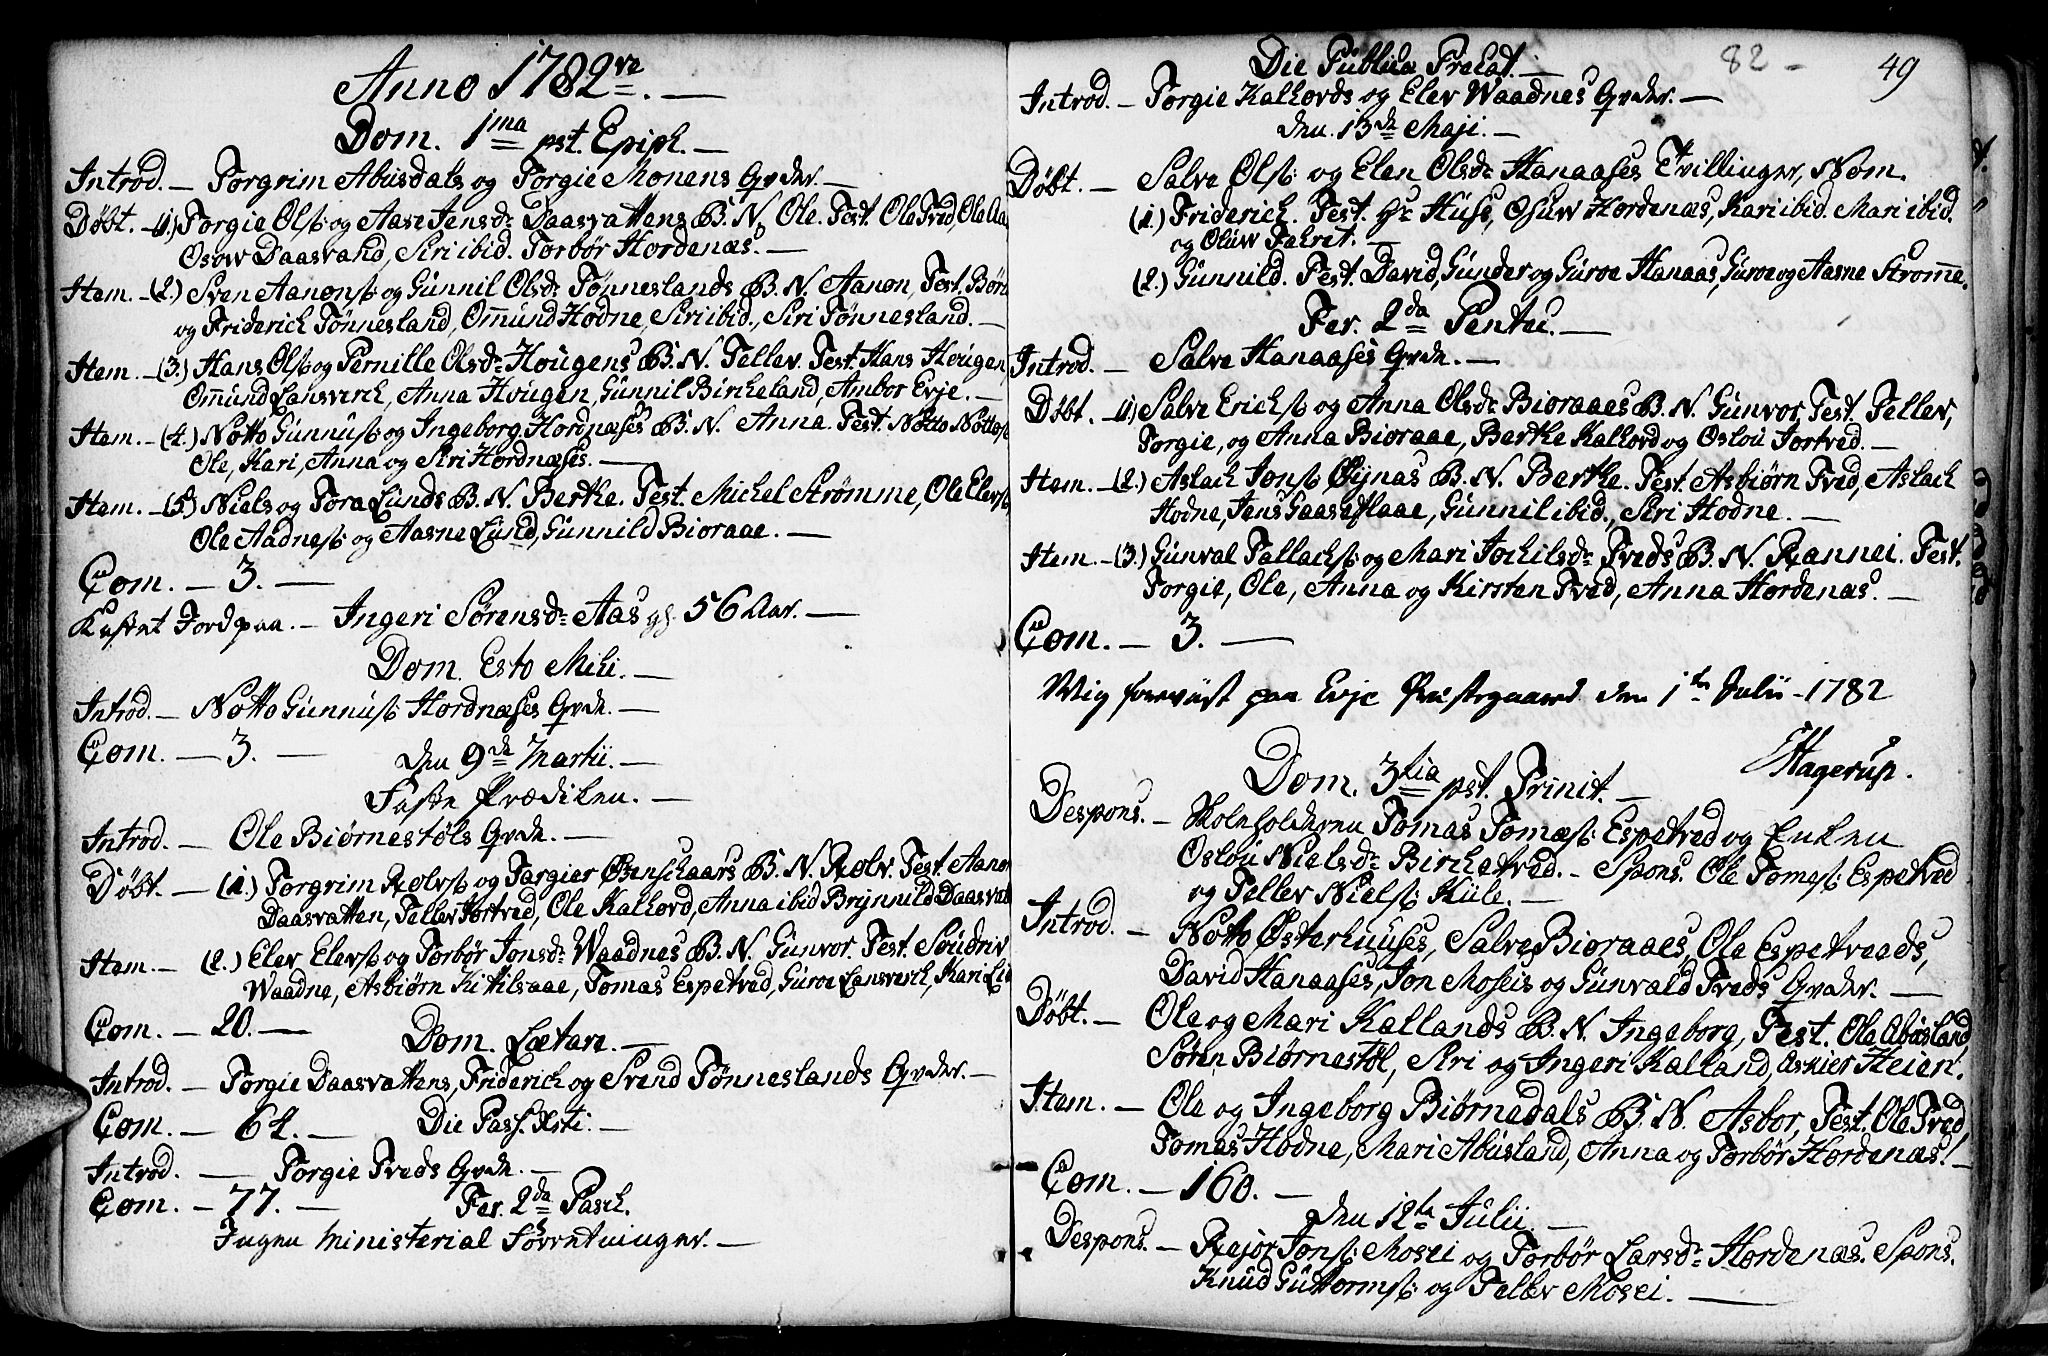 Anno 1782ve. —
Dom. 1ma pst. Epiph. —
Introd. — Torgrim Abusdals og Torgie Monens Qvder. —
Døbt. — (1.) Torgie Ols: og Aase Jensdr Daasvattens B. N. Ole. Test. Ole Tved, Ole Aa
Osow Daasvand, Siri ibid. Torbør Hordenæs. —
Item. — (2.) Sven Aanons: og Gunnil Olsdr Tønneslands B. N. Aanon, Test. Børe
og Friderich Tønnesland, Omund Hodne, Siri ibid., Siri Tønnesland. —
Item. — (3.) Hans Ols: og Pernille Olsdr Hougens B. N. Tellev. Test. Hans Hougen,
Omund Lansverch, Anna Hougen, Gunnil Bircheland, Ambor Evje. —
Item. — (4.) Notto Gunnus: og Ingeborg Hordnæses B. N. Anna. Test. Notto Nottos
Ole, Kari, Anna og Siri Hordnæses. —
Item. — (5.) Niels og Tora Lunds B. N. Berthe. Test. Michel Strømme, Ole Elevs:
Ole Aadnes: og Aasne Lund, Gunnild Bioraae. —
Com. — 3. —
Kastet Jord paa. — Ingeri Sørensdr Aas gl. 56 Aar. —
Dom. Esto Mihi. —
Introd. — Notto Gunnus: Hordnæses Qvde. —
Com. — 3. —
den 9de Martii. —
Faste Prædiken. —
Introd. — Ole Biørnestøls Qvde. —
Døbt. — (1.) Torgrim Rolvs: og Targier Øenskaars B. N. Rolv. Test. Aanon
Daasvatten, Tellev Tortved, Ole Kalhovd, Anna ibid Brynnild Daasvat
Item. — (2.) Elev Elevs: og Torbør Jonsdr Waadnes B. N. Gunvor. Test. Soudriv
Waadne, Asbiørn Kitilsaae, Tomas Espetved, Guroe Lansverch, Kari Li
Com. — 20. —
Dom. Lætare. —
Introd. — Torgie Daasvattens, Friderich og Svend Tønneslands Qvder. —
Com. — 64. —
Die Pass. Xsti. —
Introd. — Torgie Tveds Qvde. —
Com. — 77. —
Fer. 2da Pasch.
Ingen Ministerial Forretninger. —
82 —
49
Die Publica Precat. —
Introd. — Torgie Kalhovds og Elev Waadnes Qvder. —
den 13de Maji. —
Døbt. — Salve Ols: og Elen Olsdr Hanaases Tvillinger, Nom.
(1.) Friderich. Test. Hr Huss, Osuw Hordenæs, Kari ibid. Mari ibid.
og Oluw Fahret. —
(2.) Gunnild. Test. David, Gunder og Guroe Hanaas, Guroe og Aasne Strømme.
Fer. 2da Pentec. —
Introd. — Salve Hanaases Qvde. —
Døbt. — (1.) Salve Erichs: og Anna Olsdr Bioraaes B. N. Gunvor. Test. Tellev,
Torgie, og Anna Bioraae, Berthe Kalhovd og Oslou Tortved. —
Item. — (2.) Aslach Jons: Øynas B. N. Berthe. Test. Asbiørn Tved, Aslach
Hodne, Jens Gaaseflaae, Gunnil ibid., Siri Hodne. —
Item. — (3.) Gunval Tallachs: og Mari Jochilsdr Tveds B. N. Rannei. Test.
Torgie, Ole, Anna og Kirsten Tved, Anna Hordenæs. —
Com. — 3. —
Mig foreviist paa Evje Præstegaard den 1te Julii — 1782
Hagerup.
Dom. 3tia pst. Trinit. —
Despons. — Skoleholderen Tomas Tomæs: Espetved og Enken
Oslou Nielsdr Birchetved. — Spons. Ole Tomes: Espetved
og Tellev Niels: Kiile. —
Introd. — Notto Østerhuuses, Salve Bioraaes, Ole Espetveds,
David Hanaases, Jon Moseis og Gunvald Tveds Qvder. —
Døbt. — Ole og Mari Kallands B. N. Ingeborg, Test. Ole Abusland,
Sønn Biørnestøl, Siri og Ingeri Kalland, Askier Heien.
Item. — Ole og Ingeborg Biørnedals B. N. Asbor, Test. Ole Tved,
Tomas Hodne, Mari Abusland, Anna og Torbør Hordenæs. —
Com. — 160. —
den 12te Julii. —
Despons. — Rejør Jons: Mosei og Torbør Larsdr Hordenæs. Spons.
Knud Guttorms: og Tellev Mosei. —